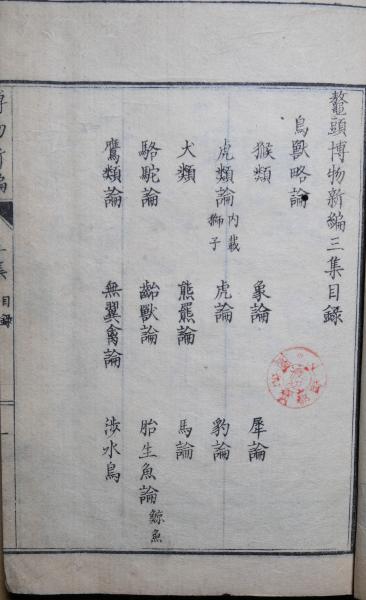 鼇頭博物新編三集目錄
鳥獸略論
猴類 象論 犀論
虎類論 內載獅子 虎論 豹論
犬類 熊羆論 馬論
駱駝論 齝獸論 胎生魚論 鯨魚
鷹類論 無翼禽論 涉水鳥
目錄
一